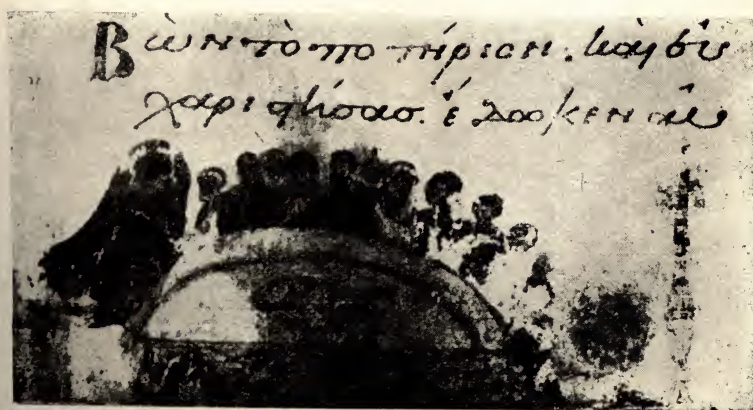 Βὼν τὸ ποτήριον. καὶ εὐ
χαριστήσας. ἔδωκεν αὐ